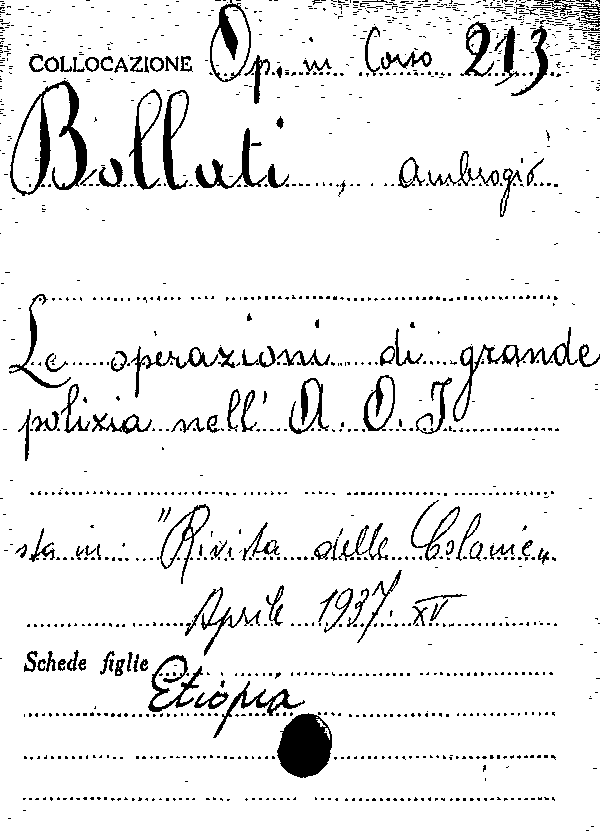 COLLOCAZIONE Op. in Corso 213
Bollati, Ambrogio
Le operazioni di grande
polizia nell' A. O. I.
sta in: "Rivista delle Colonie"
Aprile 1937. XV
Schede figlie
Etiopia